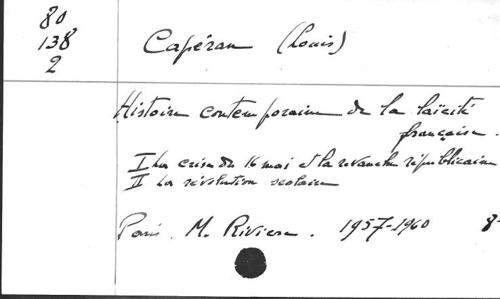 80
138
2
Capéran (Louis)
Histoire contemporaine de la laïcité
française.
I La crise du 16 mai et la revanche républicaine
II La révolution scolaire
Paris. M. Rivière. 1957-1960 8°